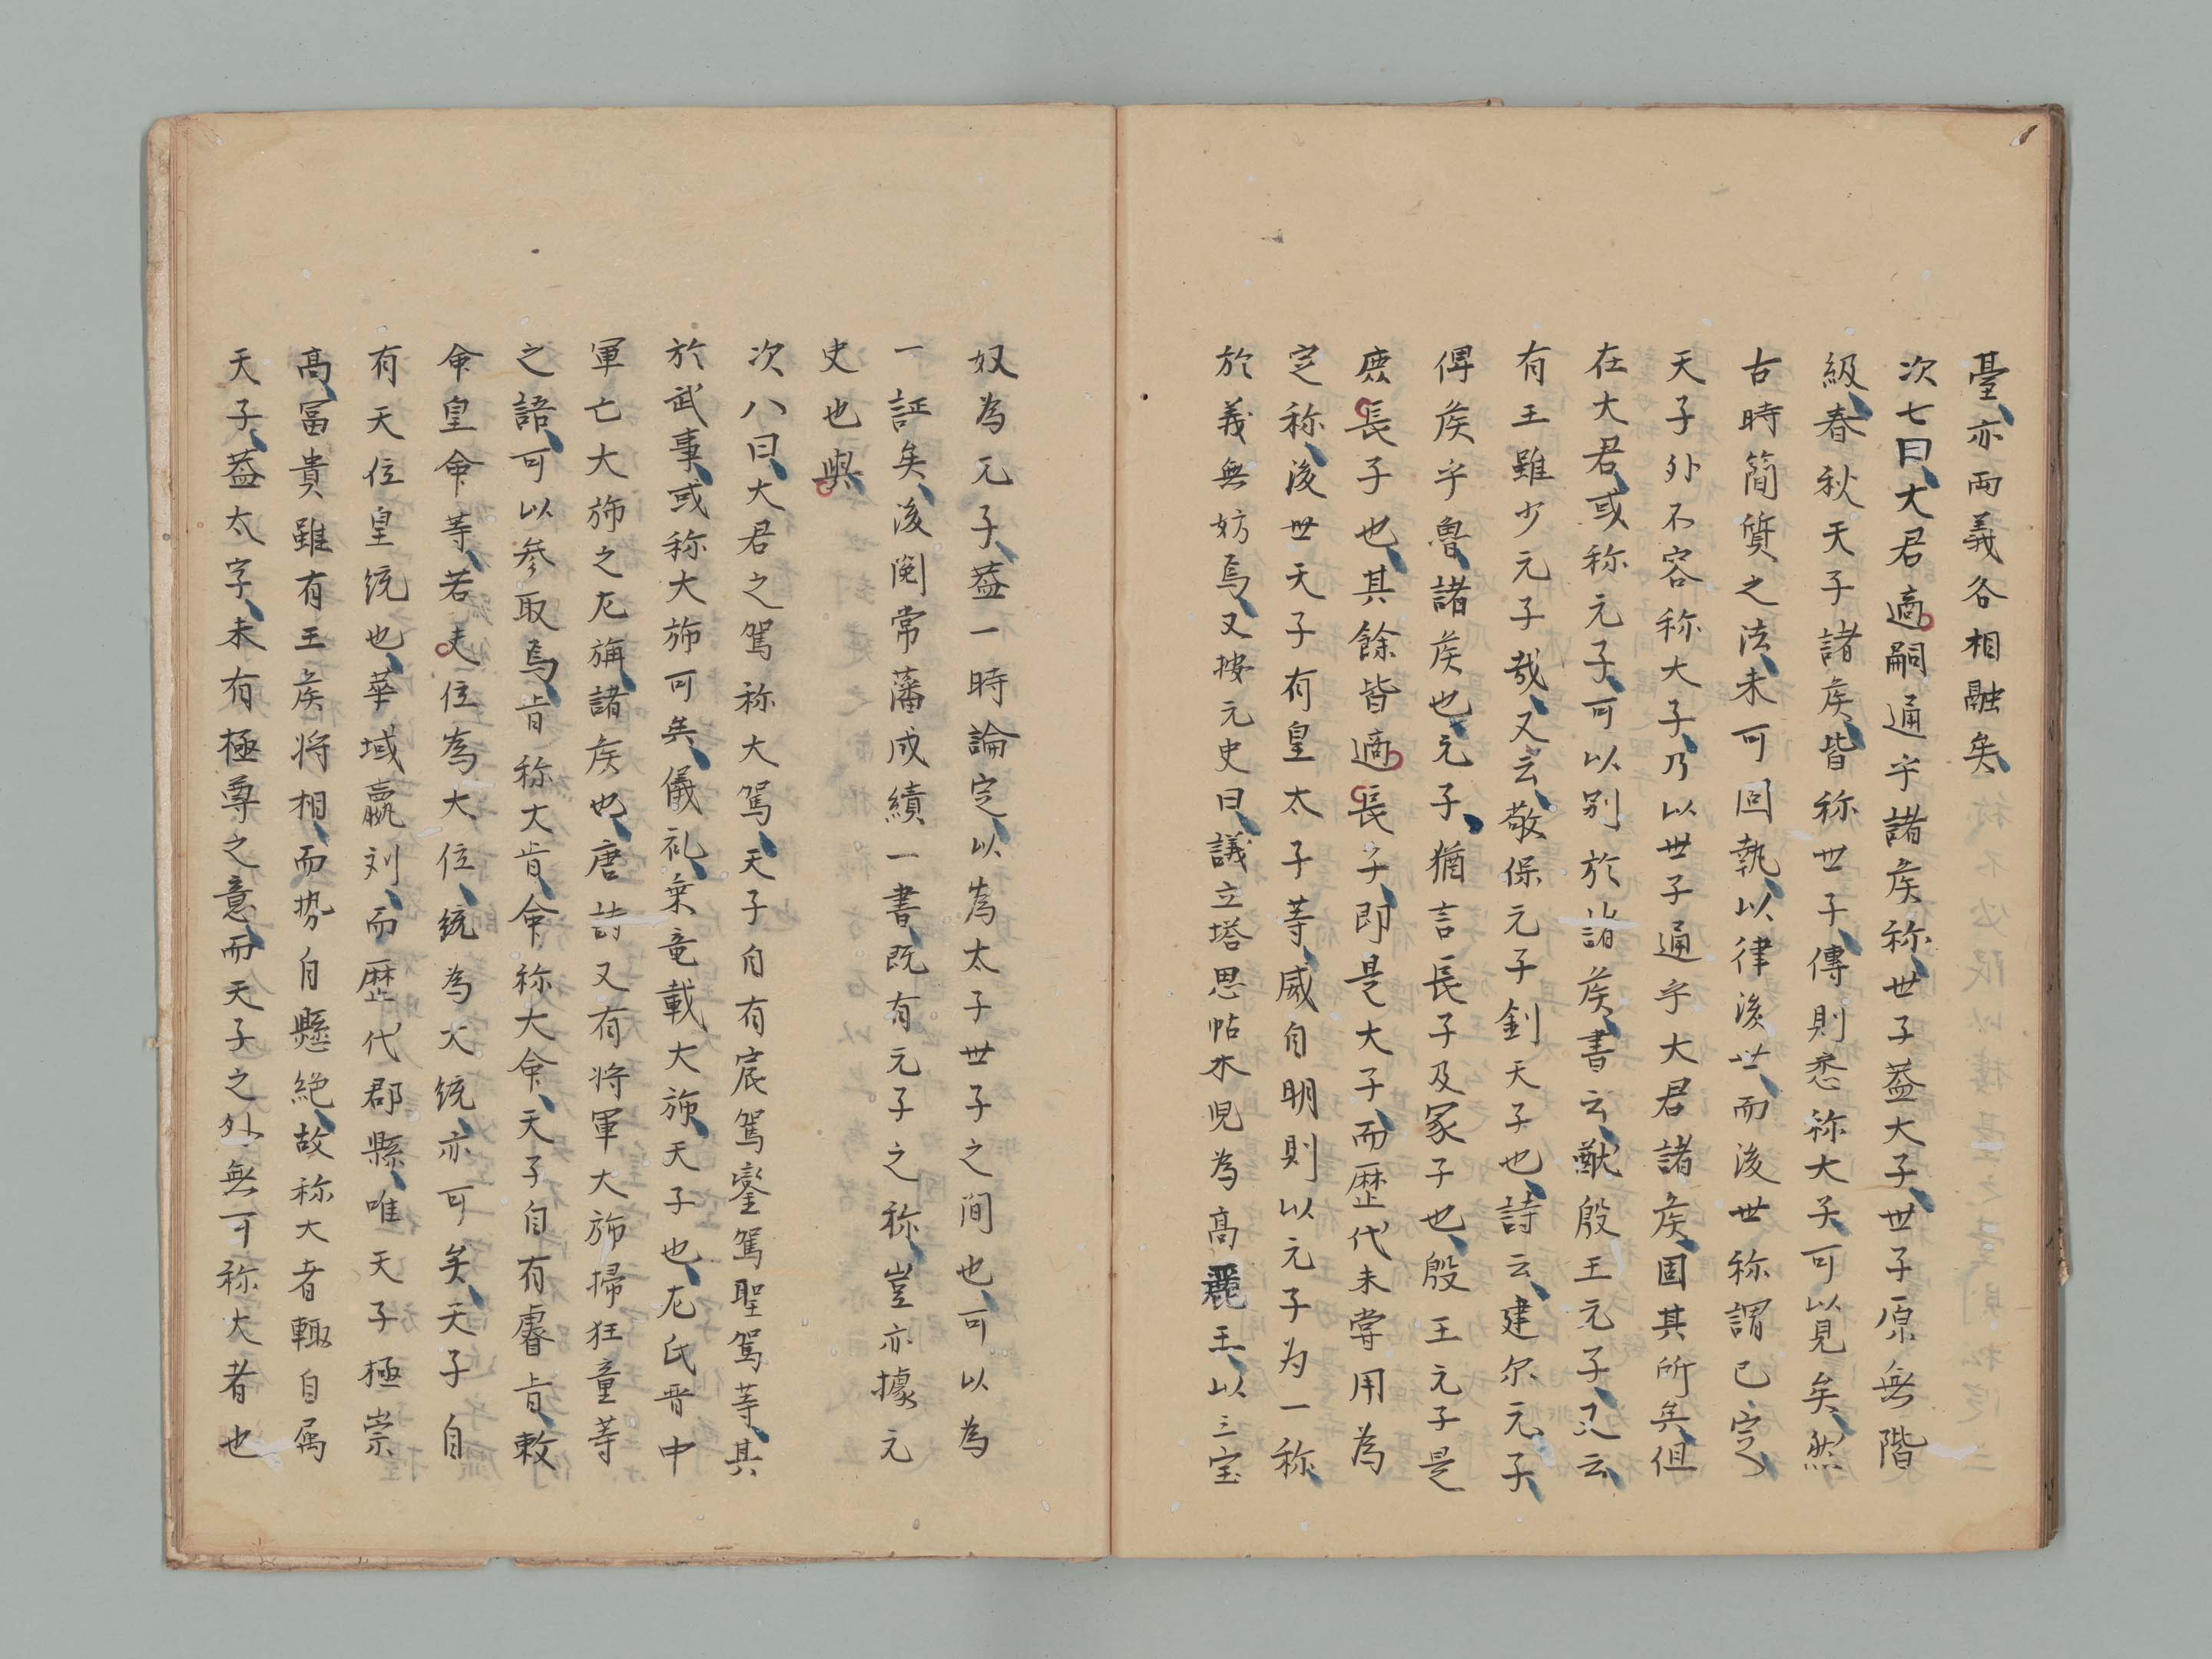 臺、亦両義各相融矣、
次七曰、大君適嗣通乎諸矦称、世子蓋大子、世子原無階
級、春秋天子諸矦、皆称世子、傳則悉称大子、可以見矣、然
古時簡質之法、未可固執、以律後世、而後世称謂已定、
天子外不容称大子、乃以世子通乎大君諸矦、固其所矣、但
在大君、或称元子、可以别於諸矦、書云、猷殷王元子、又云、
有王雖少元子哉、又云、敬保元子釗天子也、詩云、建尔元子、
俾矦乎魯、諸矦也、元子、猶言長子及冢子也、殷王元子是
庶長子也、其餘皆適長子、即是大子、而歴代未甞用為
定称、後世天子有皇太子等、威自明則以元子为一称、
於義無妨焉、又按元史曰、議立塔思帖木児為高麗王、以三宝
奴為元子、蓋一時論定、以為太子世子之間也、可以為
一証矣、後閲常藩成績一書、既有元子之称、豈亦據元
史也與、
次八曰、大君之駕称大駕、天子自有宸駕鑾駕聖駕等、其
於武事、或称大斾可矣、儀礼、乗竜載大斾、天子也、左氏晋中
軍亡大斾之左旃、諸矦也、唐詩又有将軍大斾掃狂童等
之語、可以参取焉、旨称大旨、命称大命、天子自有睿旨、敕
命皇命等、若夫位為大位、統為大統、亦可矣、天子自
有天位皇統也、華域嬴刘、而歴代郡縣、唯天子極崇
高、冨貴雖有王矦将相、而势自懸絶、故称大者輙自属
天子、蓋太字、未有極尊之意、而天子之外無可称大者也